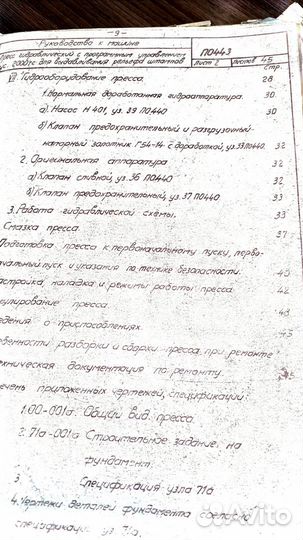 - 9 -
Руководство к машине
Пресс гидравлический с программным управлением
ус. 2000тс для выдавливания рельефа штампов
ПО443
Лист 2 Листов 45
Стр.
Гидрооборудование пресса. 28
1. Нормальная доработанная гидроаппаратура. 30
а). Насос Н 401, уз. 39 ПО440 30
б) Клапан предохранительный и разгрузочный-
напорный золотник Г54-14 с доработкой, уз.33ПО440. 32
2. Оригинальная аппаратура 32
а) Клапан сливной, уз 36 ПО440 32
в) Клапан предохранительный, уз 37 ПО440 33
3. Работа гидравлической схемы. 33
Смазка пресса 37
Подготовка пресса к первоначальному пуску, перво-
ачальный пуск и указания по технике безопасности. 40
астройка, наладка и режимы работы пресса 42
гулирование пресса. 43
едения о приспособлениях.
бенности разборки и сборки пресса при ремонте 45
ехническая документация по ремонту 45
ечень приложенных чертежей, спецификаций:
1.00-001а. Общий вид пресса.
2. 71а-001а Строительное задание на
фундамент.
3. Спецификация узла 71а
4. Чертежи деталей фундамента согласно
спецификации уз 71а.
Avito